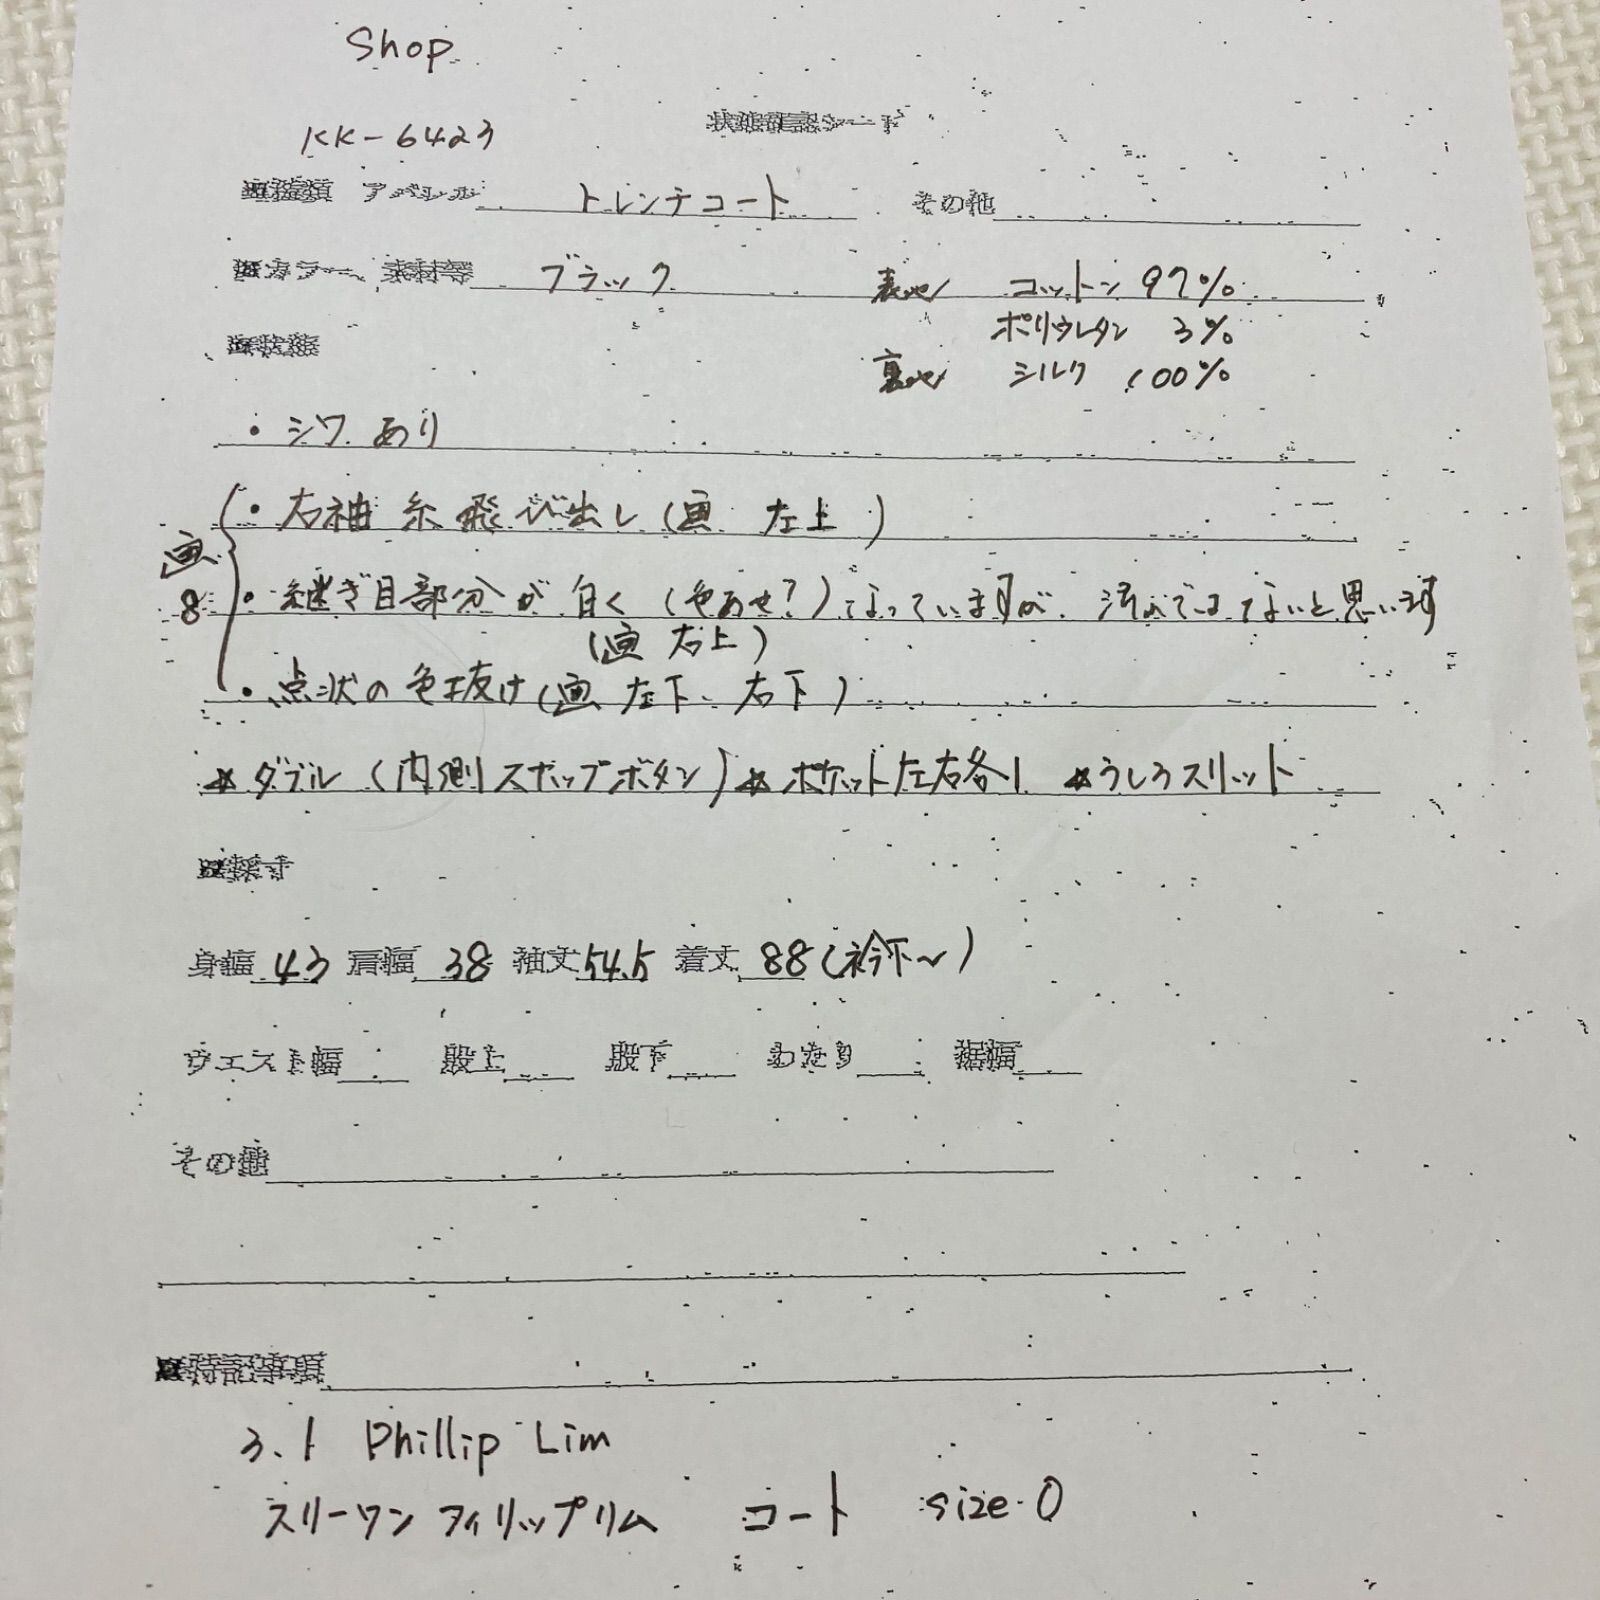 Shop
KK-6423
状態確認シート
■種類 アパレル トレンチコート その他
■カラー、素材等 ブラック 表地 コットン 97%
ポリウレタン 3%
■状態
裏地 シルク 100%
・シワあり
・右袖 糸飛び出し(画 左上)
画8
・継ぎ目部分が白く(色あせ?)なっていますが、汚れではないと思います
(画 右上)
・点状の色抜け(画 左下、右下)
☆ダブル(内側スナップボタン)☆ポケット左右各1 ☆うしろスリット
■採寸
身幅 43 肩幅 38 袖丈 54.5 着丈 88(衿下〜)
ウエスト幅 股上 股下 わたり 裾幅
その他
■特記事項
3.1 Phillip Lim
スリーワンフィリップリム コート size 0